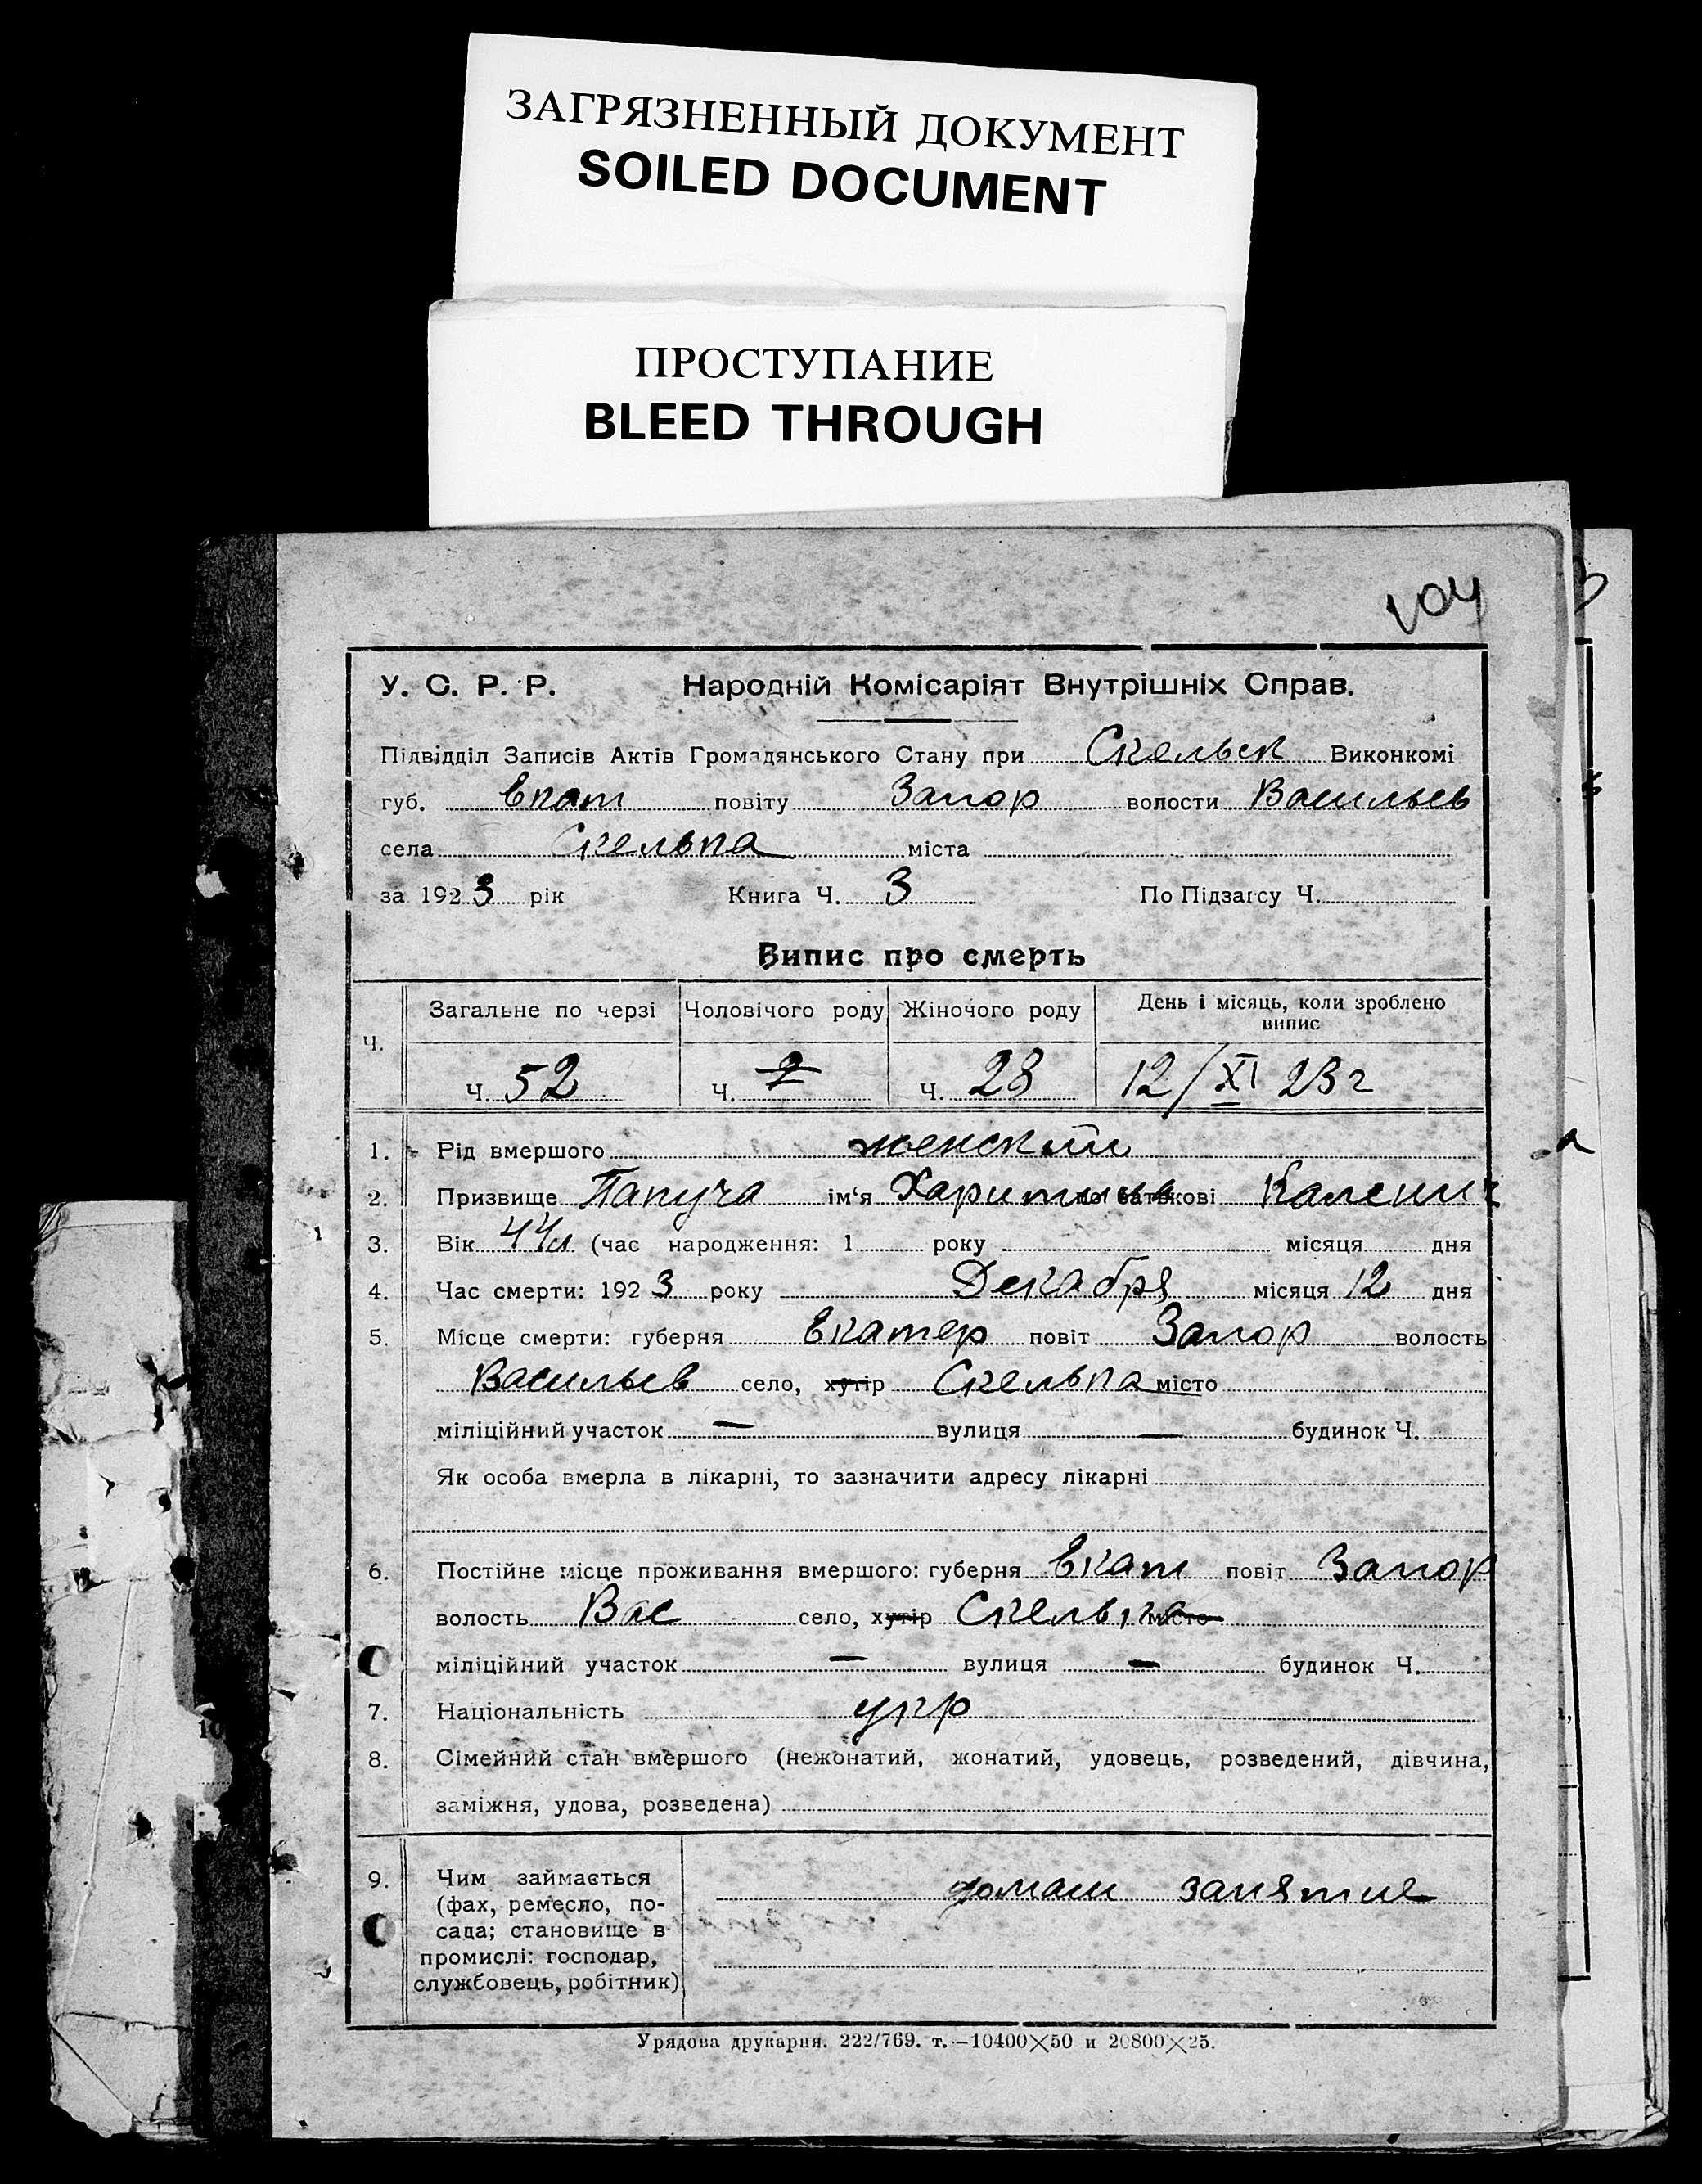 ЗАГРЯЗНЕННЫЙ ДОКУМЕНТ
SOILED DOCUMENT
ПРОСТУПАНИЕ
BLEED THROUGH
104
У. С. Р. Р. Народній Комісаріят Внутрішніх Справ.
Підвідділ Записів Актів Громадянського Стану при Скельск Виконкомі
губ. Екат повіту Запор волости Васильев
села Скелька міста
за 1923 рік Книга Ч. 3 По Підзагсу Ч.
Випис про смерть
Ч. Загальне по черзі Чоловічого роду Жіночого роду День і місяць, коли зроблено
випис
Ч. 52 Ч. Ч. 28 12/XI 23 г
1. Рід вмершого женский
2. Призвище Папуча ім'я Харитина по батькові Каленич
3. Вік 44л (час народження: 1 року місяця дня
4. Час смерти: 1923 року Декабря місяця 12 дня
5. Місце смерти: губерня Екатер повіт Запор волость
Васильев село, хутір Скелька місто
міліційний участок — вулиця — будинок Ч.
Як особа вмерла в лікарні, то зазначити адресу лікарні
6. Постійне місце проживання вмершого: губерня Екат повіт Запор
волость Вас село, хутір Скелька місто
міліційний участок — вулиця — будинок Ч.
7. Національність укр
8. Сімейний стан вмершого (нежонатий, жонатий, удовець, розведений, дівчина,
заміжня, удова, розведена)
9. Чим займається домаш занятие
(фах, ремесло, по-
сада; становище в
промислі: господар,
службовець, робітник)
Урядова друкарня. 222/769. т.—10400×50 и 20800×25.